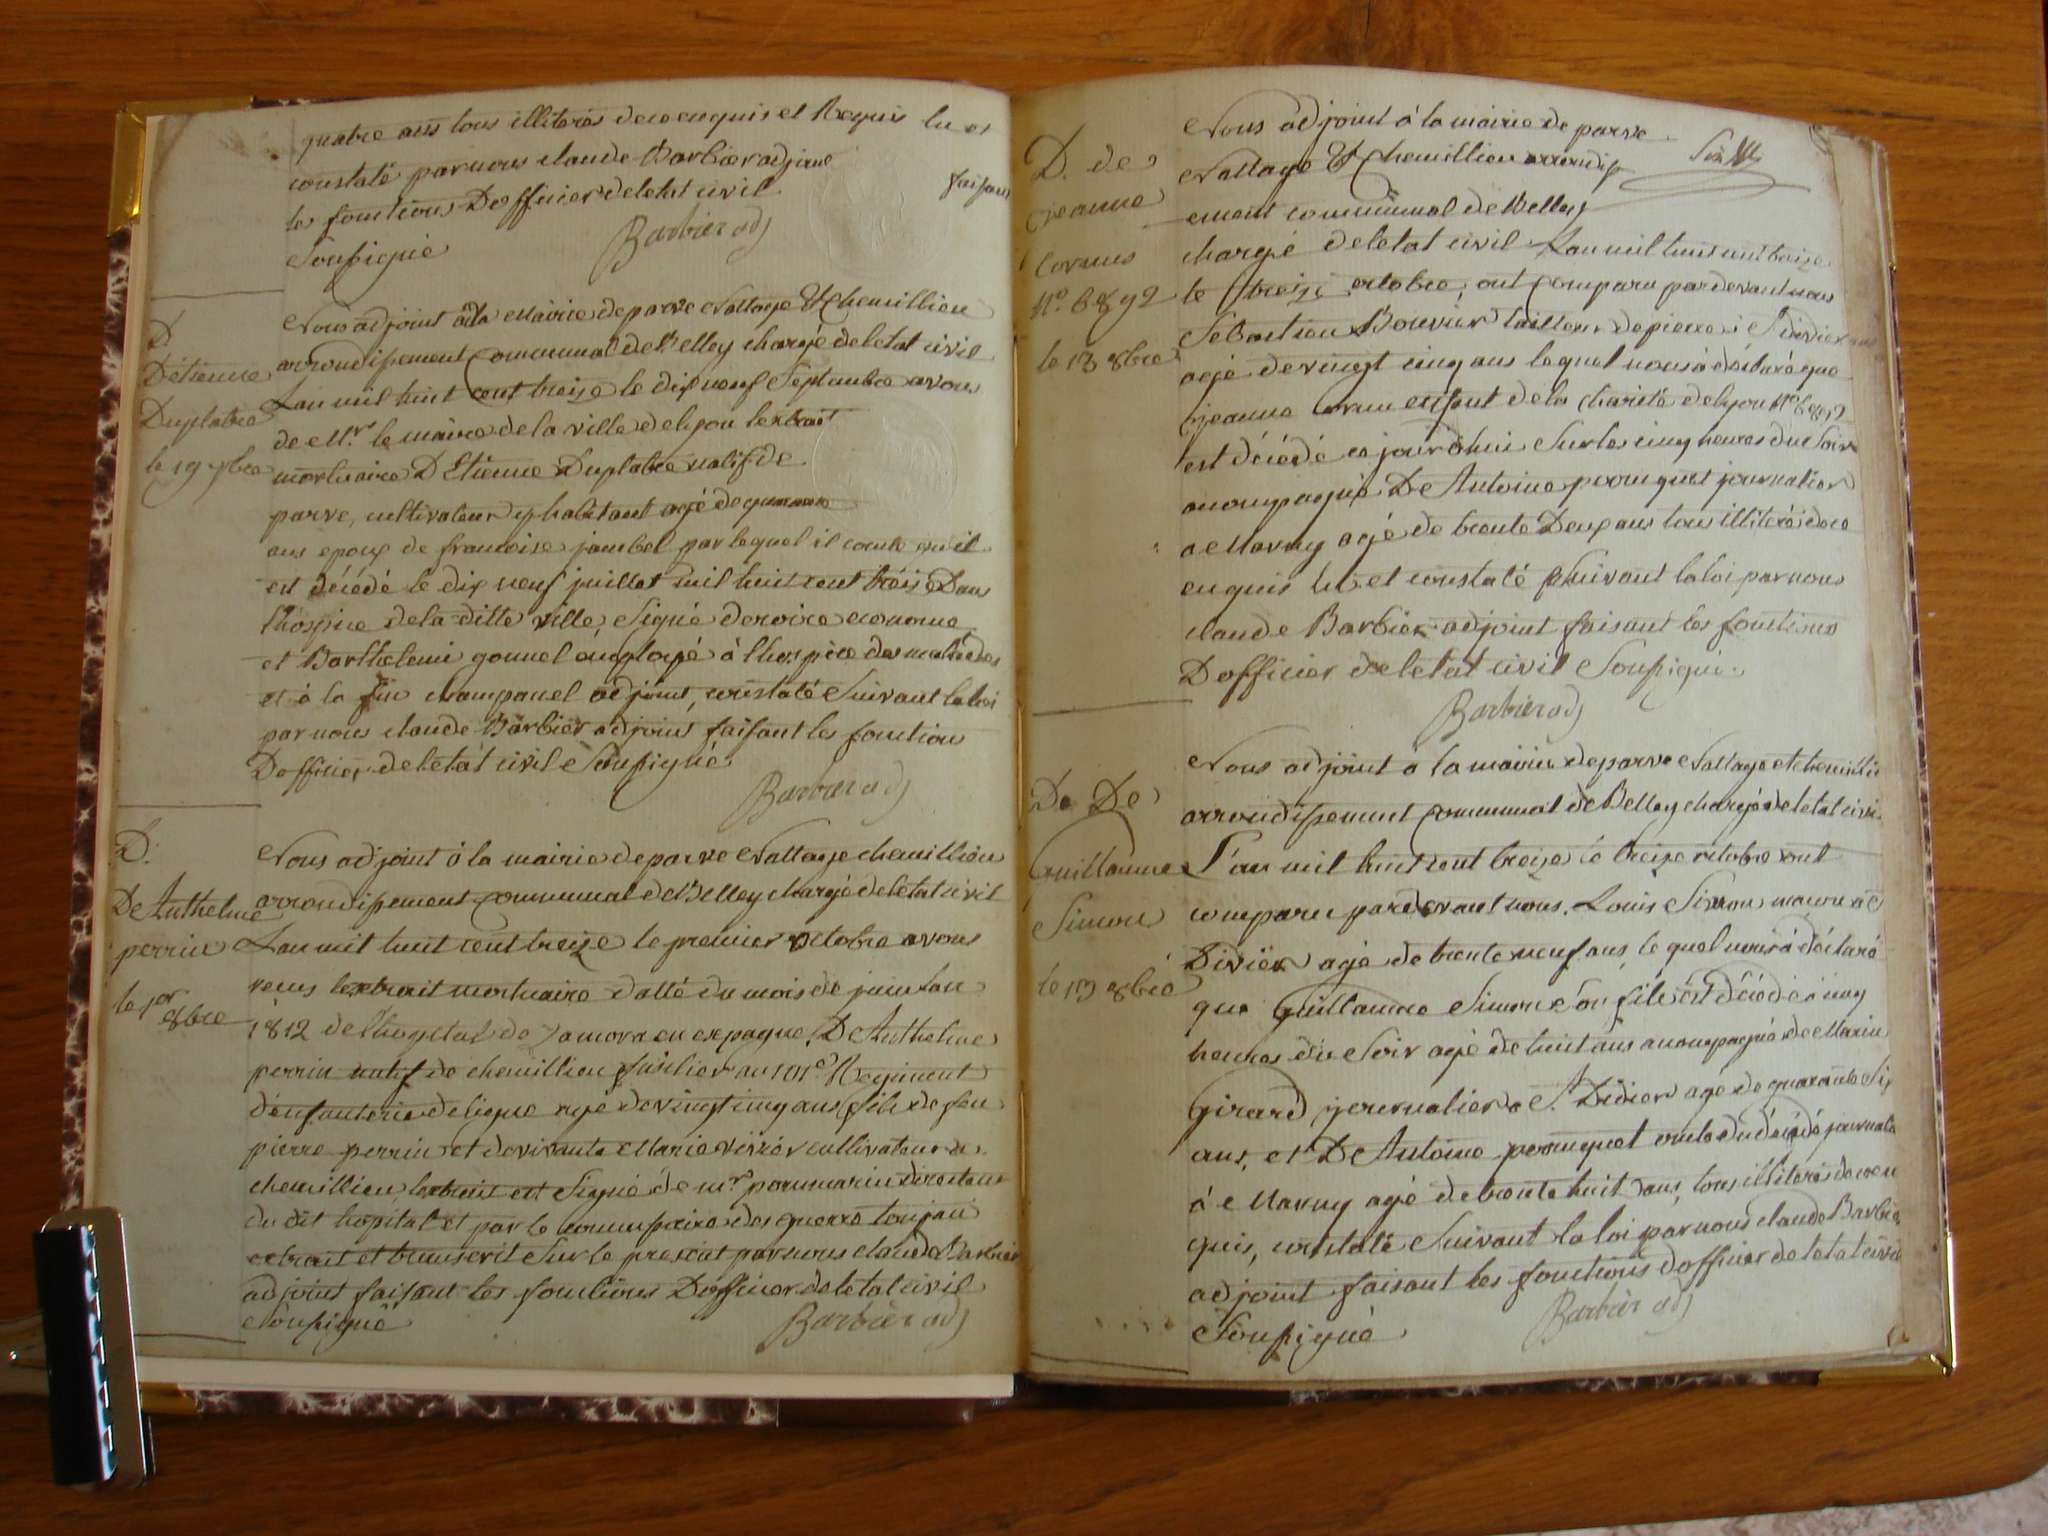 quatre ans tous illiterés de ce enquis et Requis lu et
constaté par nous claude Barbier adjoint
faisant
les fonctions D officier de letat civil
Soussigné
Barbier adj
D
D étienne
Duplatre
le 19 7bre
Nous adjoint à la Mairie de parve Nattage Et Chemillieu
arrondissement Communal de Belley chargé de letat civil
Lan mil huit cent treize le dix neuf Septembre avons
de Mr. le maire de la ville de lyon lextrait
mortuaire D Etienne Duplatre natif de
parve, cultivateur y habitant agé de
ans epoux de francoise jambel par lequel il conste quil
est décédé le dix neuf juillet mil huit cent treize Dans
lhospice de la ditte ville, Signé econome
et Barthelemi gonnel employé à lhospice des malades
et à la fin champanel adjoint, constaté Suivant la loi
par nous claude Barbier adjoint faisant les fonctions
D officier de letat civil Soussigné
Barbier adj
D.
De Anthelme
perrin
le 1er 8bre
Nous adjoint à la mairie de parve Nattage chemillieu
arrondissement communal de Belley chargé de letat civil
Lan mil huit cent treize le premier octobre avons
recus lextrait mortuaire datté du mois de juin lan
1812 de lhopital de Zamora en espagne, D Anthelme
perrin natif de chemillieu fusilier au 101e Regiment
denfanterie de ligne agé de vingt cinq ans fils de feu
pierre perrin et de vivante Marie vivier cultivateur a
chemillieu, lextrait est Signé de mr directeur
du dit hopital et par le commissaire des guerres
extrait et transcrit Sur le present par nous claude Barbier
adjoint faisant les fonctions D officier de letat civil
Soussigné
Barbier adj
D. de
jeanne
Cornus
No. 6892
le 13 8bre
Nous adjoint à la mairie de parve
Nattage Et Chemillieu arrondiss
ement communal de Belley
chargé de letat civil Lan mil huit cent treize
le treize octobre, ont Comparu par devant nous
Sebastien Bouvier tailleur de pierre à St didier
agé de vingt cinq ans lequel nous à déclaré que
jeanne enfant de la charité de lyon No. 6892
est décédé ce jourdhui Sur les cinq heures du Soir
acompagné De Antoine perruquet journalier
a Marny agé de trente Deux ans tous illiterés de ce
enquis lu et constaté Suivant la loi par nous
claude Barbier adjoint faisant les fonctions
D officier de letat civil Soussigné
Barbier adj
De De
Guillaume
Simon
le 13 8bre
Nous adjoint à la mairie de parve Nattage et chemillie
arrondissement Communal de Belley chargé de letat civi
L'an mil huit cent treize le treize octobre ont
comparu par devant nous, Louis Simon macon a St
Divier agé de trente neuf ans le quel nous à déclaré
que Guillaume Simon Son fils est décédé à cinq
heures du Soir agé de huit ans acompagné de Marin
Girard journalier a St. Didier agé de quarante Six
ans, et De Antoine perruquet oncle du décédé journalie
à Marny agé de trente huit ans, tous illiterés de ce en
quis, constaté Suivant la loi par nous claude Barbier
adjoint faisant les fonctions dofficier de letat civil
Soussigné
Barbier adj